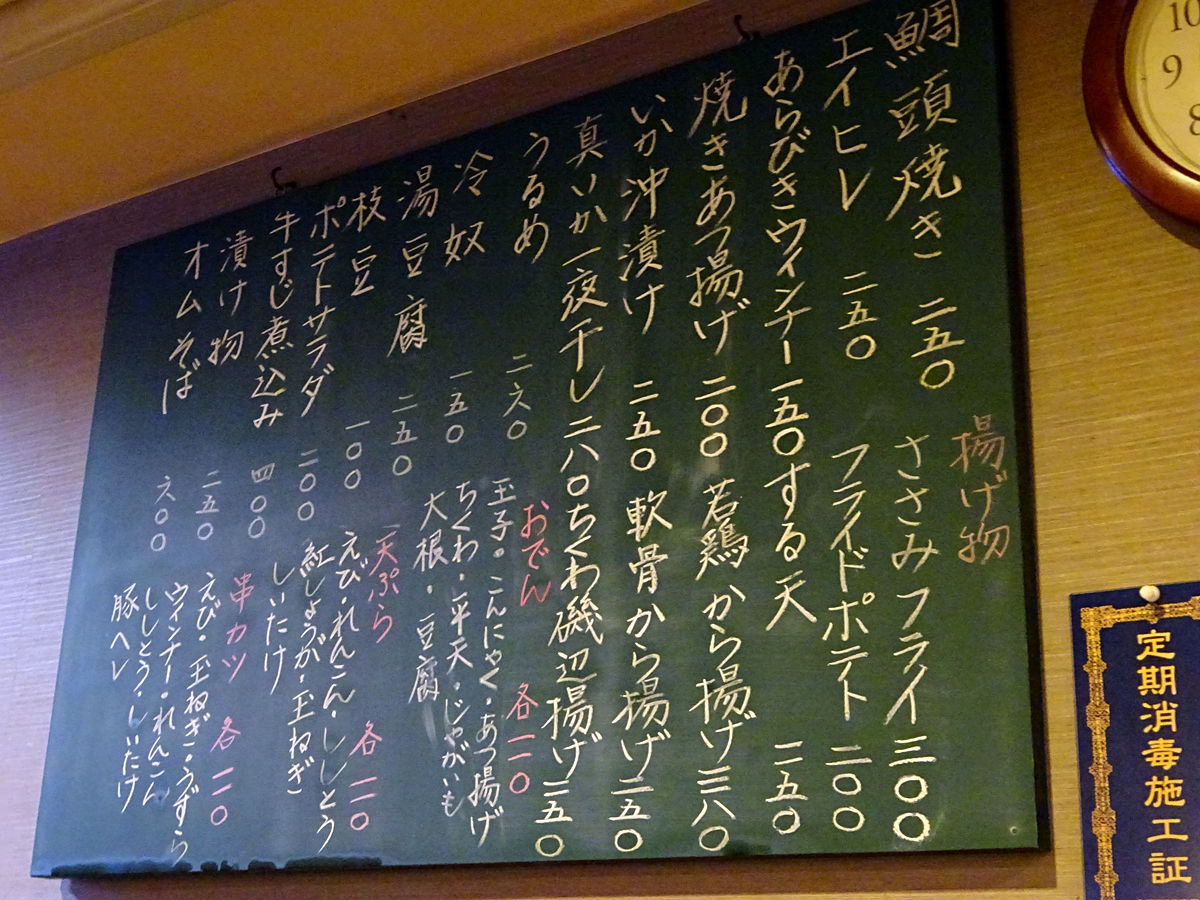 鯛頭焼き 二五〇
エイヒレ 二五〇
あらびきウインナー 一五〇
焼きあつ揚げ 二〇〇
いか沖漬け 二五〇
真いか一夜干し 二八〇
うるめ 二六〇
冷奴 一五〇
湯豆腐 二五〇
枝豆 一〇〇
ポテトサラダ 二〇〇
牛すじ煮込み 四〇〇
漬け物 二五〇
オムそば 六〇〇
揚げ物
ささみフライ 三〇〇
フライドポテト 二〇〇
する天 二五〇
若鶏から揚げ 三八〇
軟骨から揚げ 二五〇
ちくわ磯辺揚げ 二五〇
おでん 各一一〇
玉子・こんにゃく・あつ揚げ
ちくわ・平天・じゃがいも
大根・豆腐
天ぷら 各一一〇
えび・れんこん・ししとう
紅しょうが・玉ねぎ
しいたけ
串カツ 各一一〇
えび・玉ねぎ・うずら
ウインナー・れんこん
ししとう・しいたけ
豚ヘレ
10
9
8
定期消毒施工証